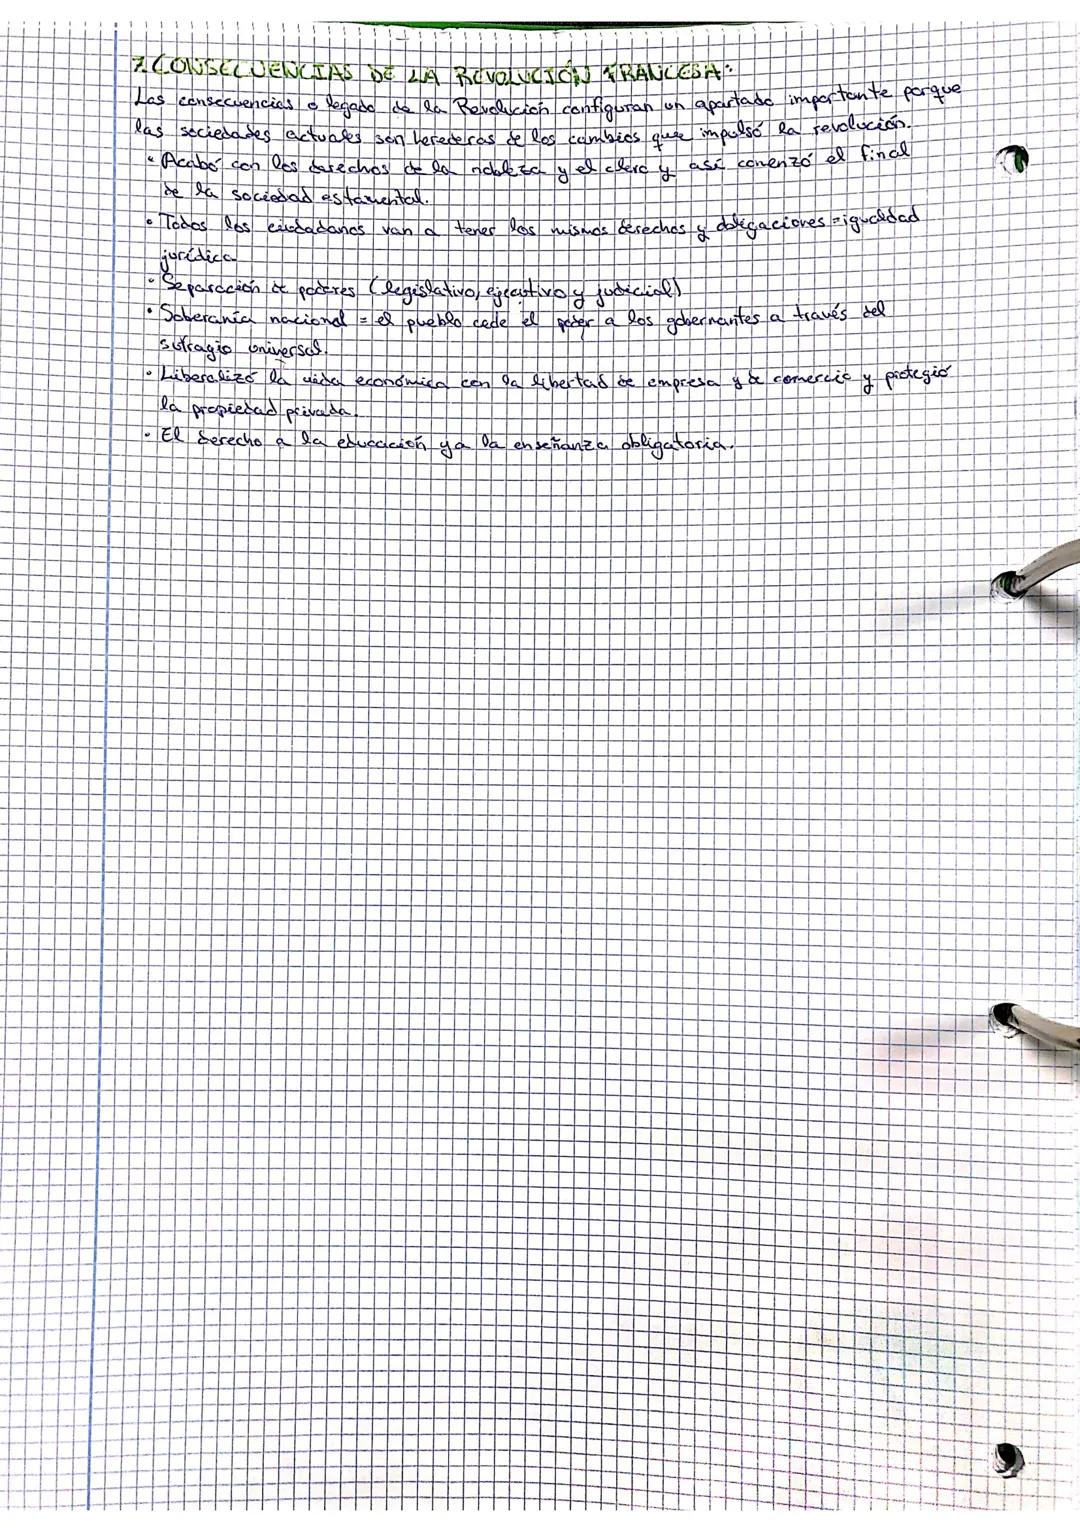 7. CONSECUENCIAS DE LA REVOLUCIÓN FRANCESA:
Las consecuencias o legado de la Revolución configuran un apartado importante porque
las sociedades actuales son herederas de los cambios que impulsó la revolución.
• Acabó con los derechos de la nobleza y el clero y así comenzó el final
de la sociedad estamental.
• Todos los ciudadanos van a tener los mismos derechos y obligaciones = igualdad
jurídica
• Separación de poderes (legislativo, ejecutivo y judicial)
• Soberanía nacional = el pueblo cede el poder a los gobernantes a través del
sufragio universal.
• Liberalizó la vida económica con la libertad de empresa y de comercio y protegió
la propiedad privada.
• El derecho a la educación y a la enseñanza obligatoria.